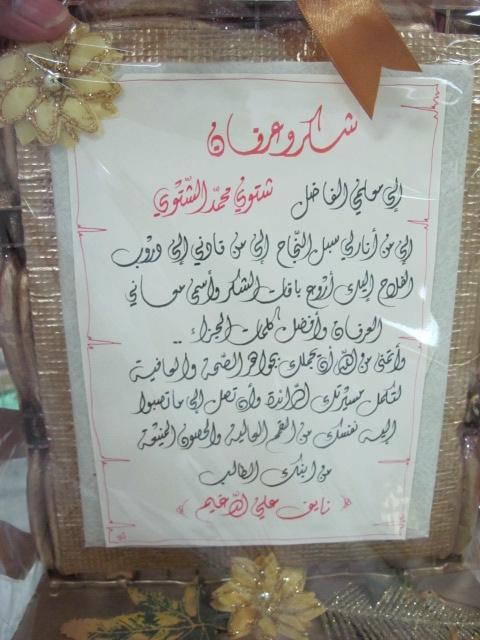 شكر وعرفان
إلى معلمي الفاضل شتوي محمد الشتوي
إلى من أنار لي سبل النجاح إلى من قادني إلى دروب
الفلاح إليك أتوج باقات الشكر وأسمى معاني
العرفان وأفضل كلمات الجزاء ..
وأتمنى من الله أن يجملك بجواهر الصحة والعافية
لتكمل مسيرتك الرائدة وأن تصل إلى ما تصبوا
إليه نفسك من القمم العالية والحصون المنيعة
من ابنك الطالب
« نايف علي الدغيم »